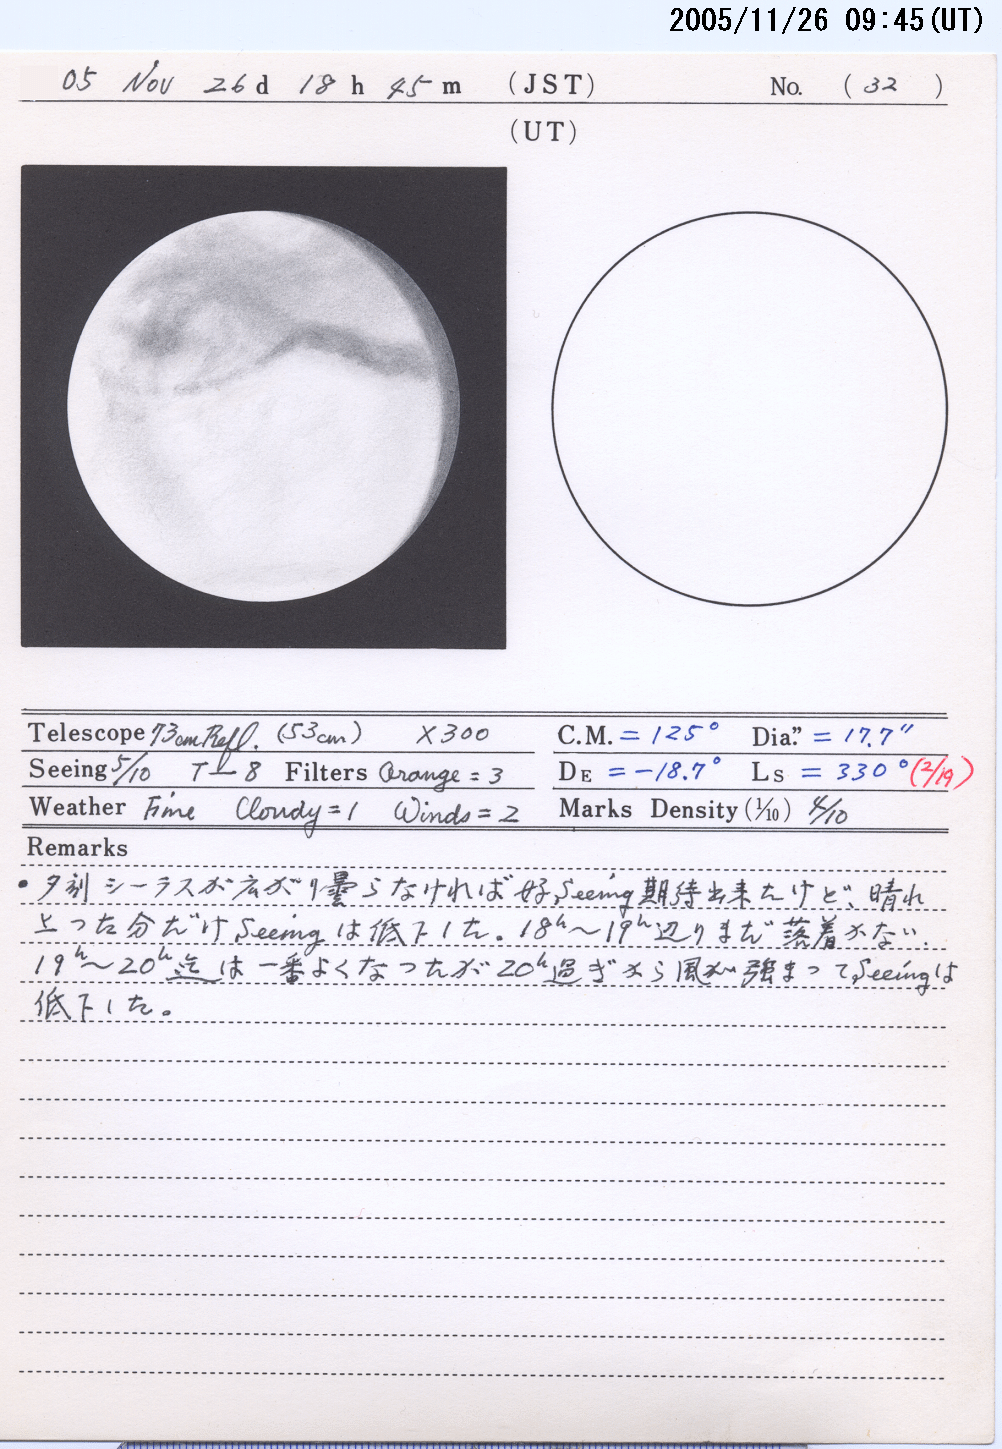 2005/11/26 09:45(UT)
05 Nov 26d 18h 45m (JST) No. (32)
(UT)
Telescope 73cm Refl. (53cm) ×300
Seeing 5/10 T-8 Filters Orange=3
Weather Fine Cloudy=1 Winds=2
C.M. =125° Dia." =17.7"
DE =-18.7° Ls =330°(2/19)
Marks Density(1/10) 4/10
Remarks
•夕刻シーラスが広がり曇らなければ好Seeing期待出来たけど、晴れ
上った分だけSeeingは低下した。18h〜19h辺りまだ落着かない.
19h〜20h迄は一番よくなったが20h過ぎから風が強まってSeeingは
低下した。